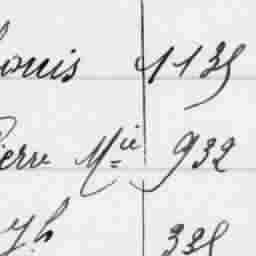 Louis 1135
Pierre M^ie 932
335